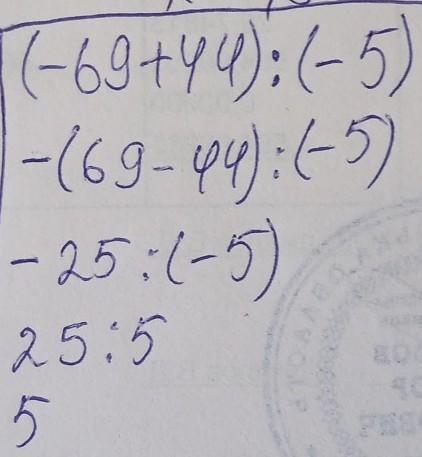 (-69+44):(-5)
-(69-44):(-5)
-25:(-5)
25:5
5